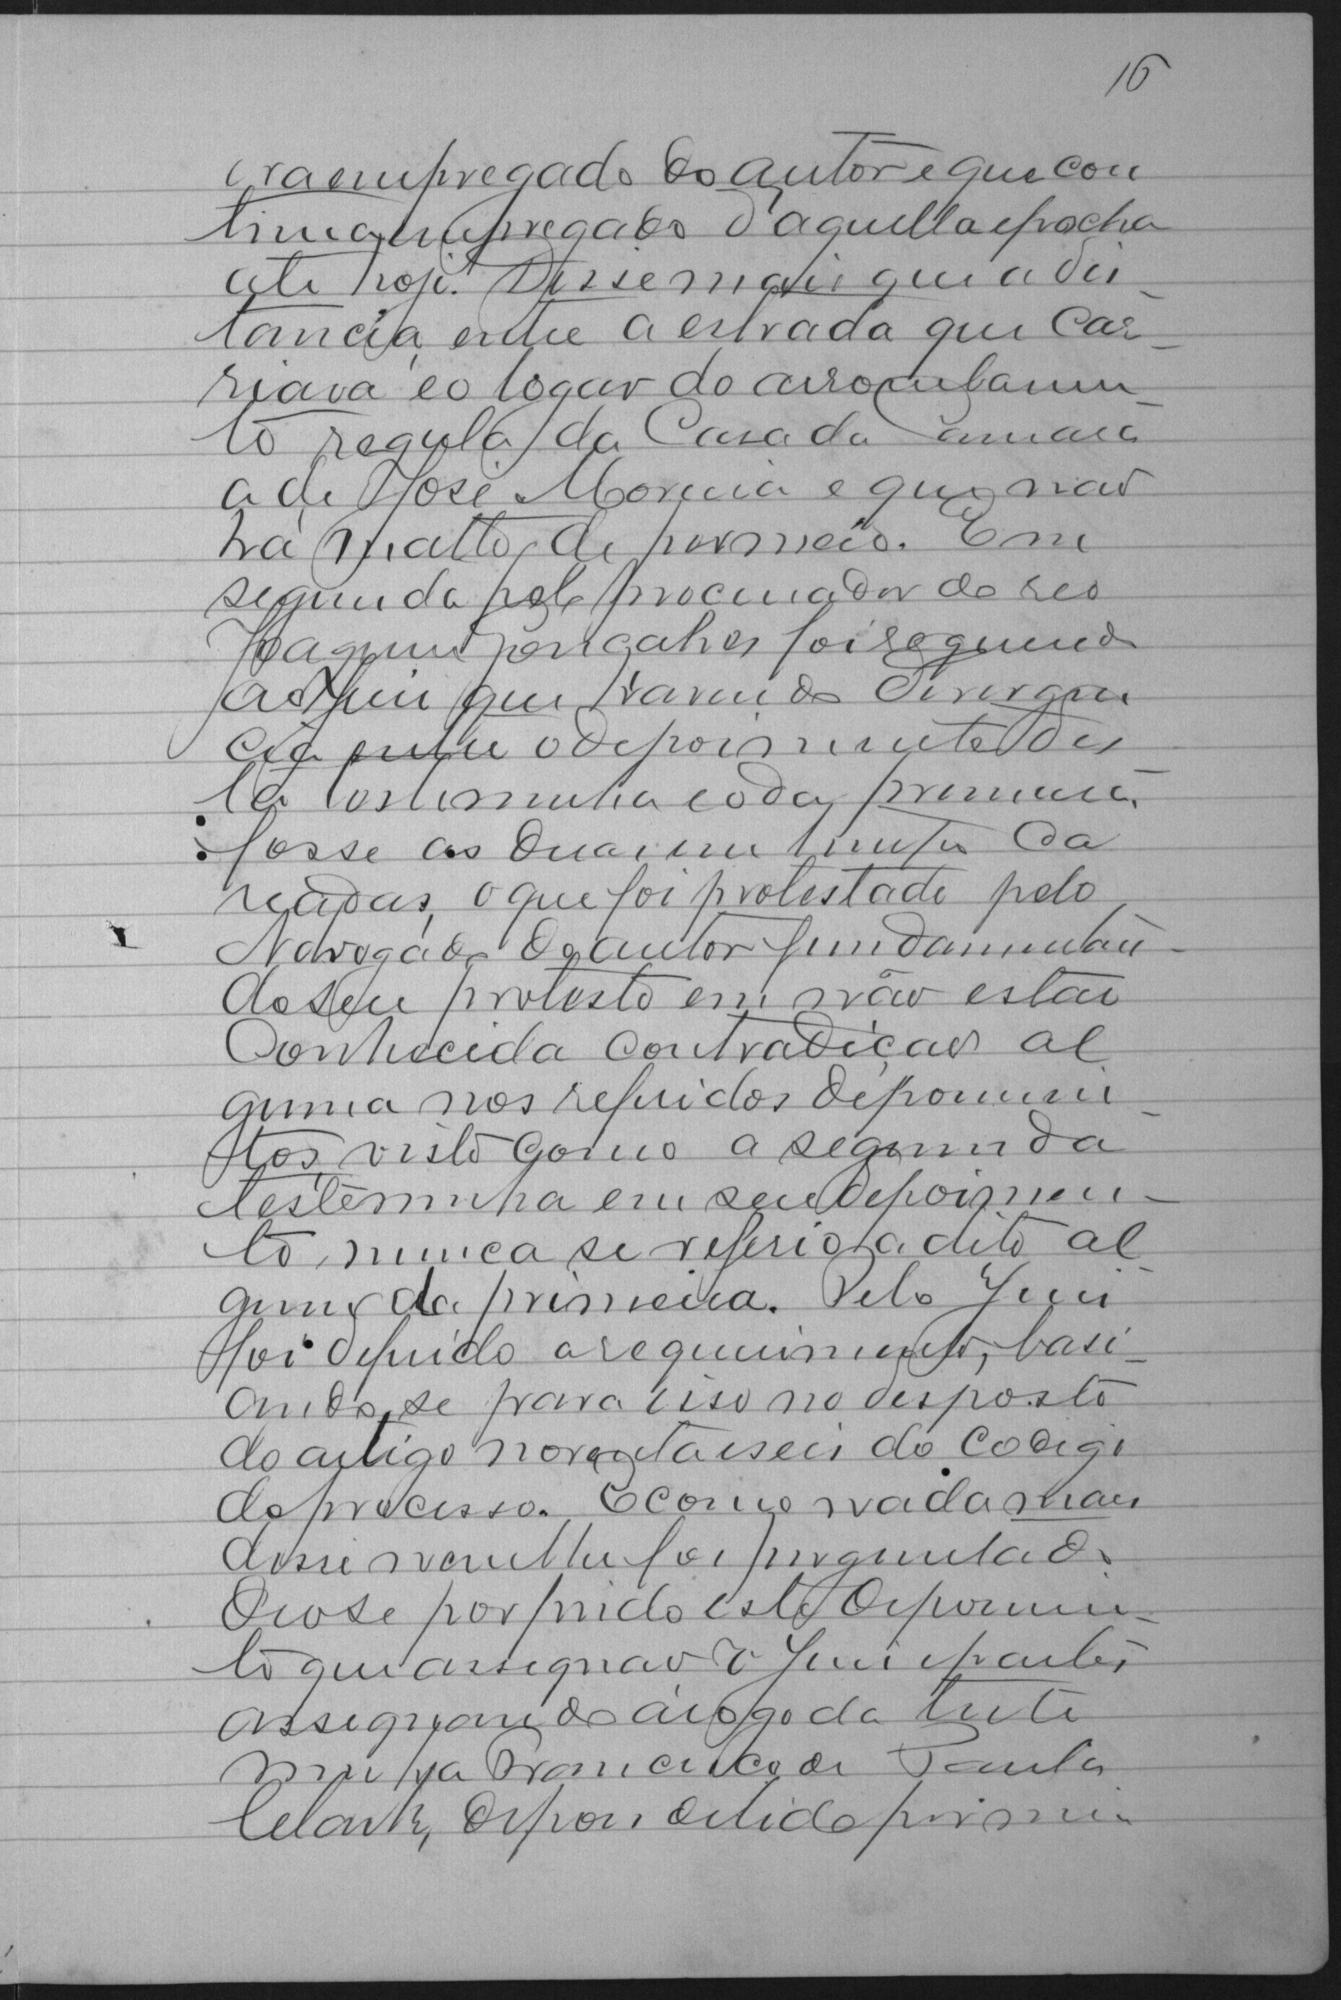 16
era empregado do autor e que con
tinua empregado d'aquella epocha
ate hoje. Disse mais que a dis
tancia entre a estrada que car
riava e o logar do arrombamen
to regula da Casa da Camara
a de José Moreira e que não
há matto de permeio. Em
seguida pelo procurador do reo
Joaquim Gonçalves foi requerido
ao Juiz que havendo divergen
cia entre o depoimento des
ta testemunha e o da primeira
fosse as duas
readas, o que foi protestado pelo
Advogado do autor fundamentan
do seu protesto em não estar
Conhecida contradição al
guma nos referidos depoimen
tos, visto como a segunda
testemunha em seu depoimen
to, nunca se referio a dito al
gum da primeira. Pelo Juiz
foi deferido o requerimento, basi
ando se para isso no desposto
do artigo noventa e seis do codigo
do processo. E como nada mais
disse nem lhe foi perguntado
Deo se por findo este depoimen
to que assignão o Juiz e partes
assignando á rogo da teste
munha Francisco de Paula
depois de lido por mim